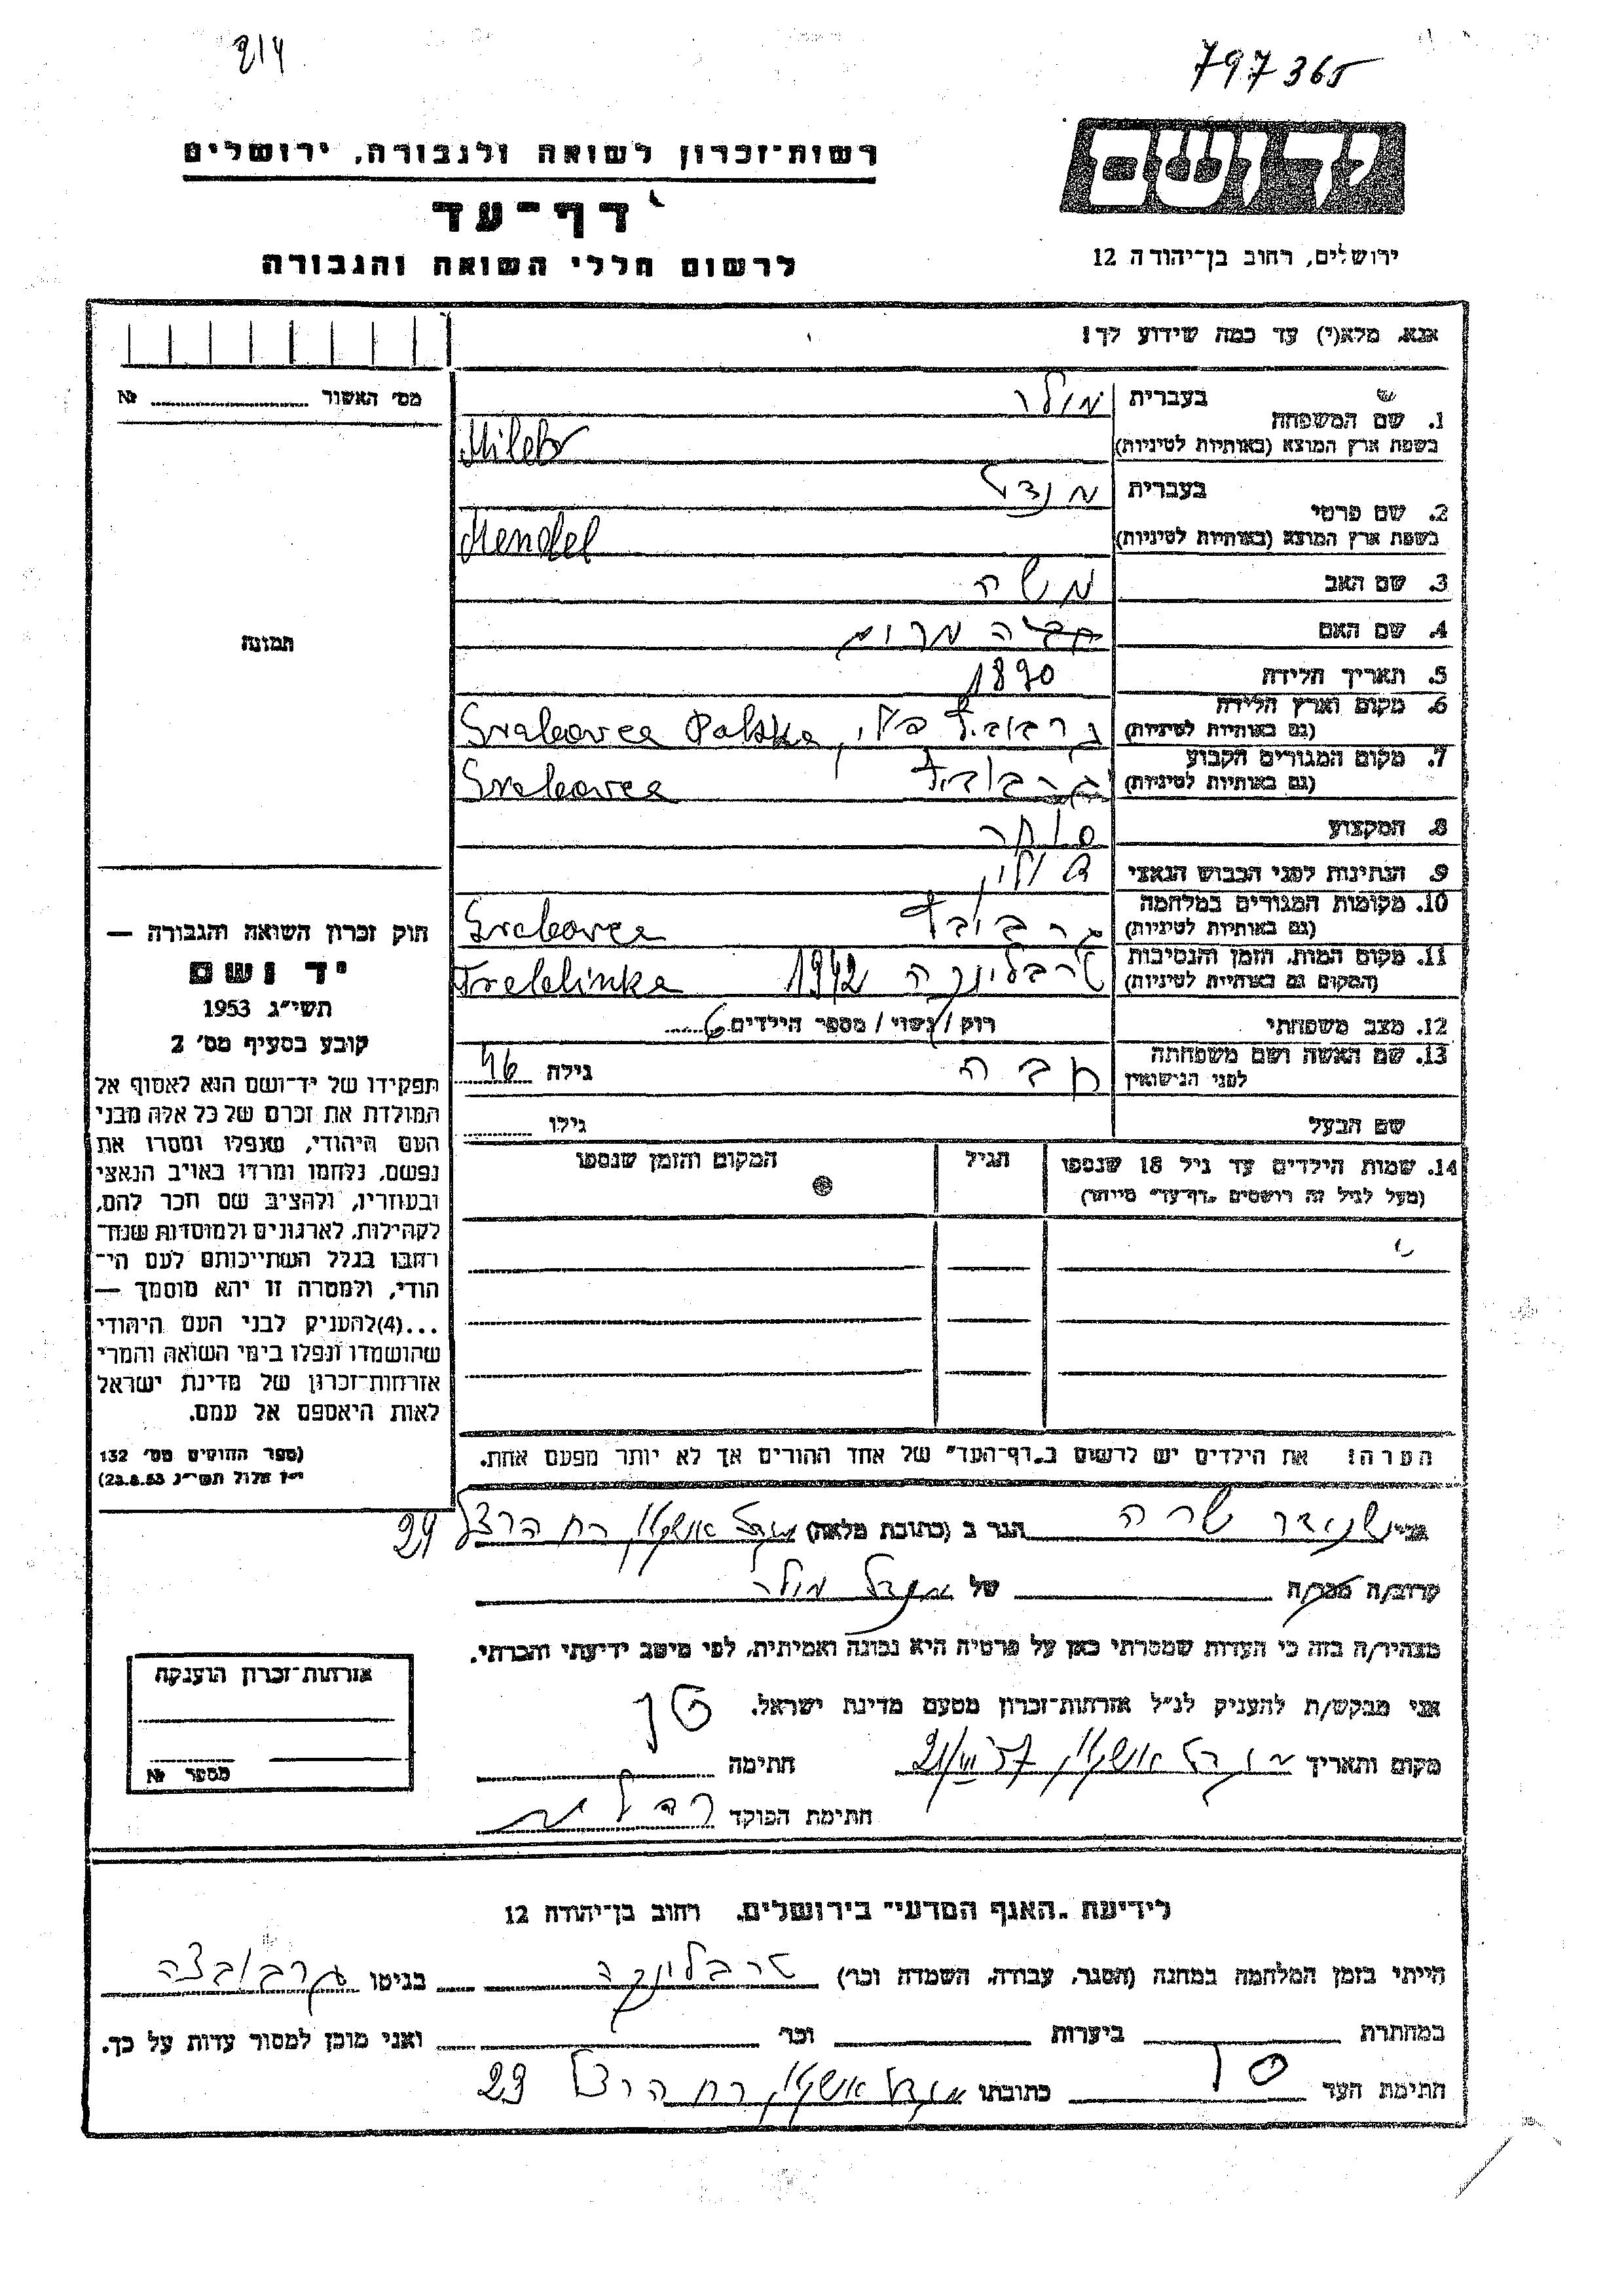 214
797365
ידושם
רשות־זכרון לשואה ולגבורה, ירושלים
דף־עד
לרשום חללי השואה והגבורה
ירושלים, רחוב בן־יהודה 12
אנא, מלא(י) עד כמה שידוע לך!
מס׳ האשור № 
1. שם המשפחה
בעברית
מולר
בשפת ארץ המוצא (באותיות לטיניות)
Miler
2. שם פרטי
בעברית
מנדל
בשפת ארץ המוצא (באותיות לטיניות)
Mendel
3. שם האב
משה
4. שם האם
מרים
5. תאריך הלידה
1890
6. מקום וארץ הלידה
(גם באותיות לטיניות)
Grabovce Polska
7. מקום המגורים הקבוע
(גם באותיות לטיניות)
Grabovce
8. המקצוע
סוחר
9. הנתינות לפני הכבוש הנאצי
10. מקומות המגורים במלחמה
(גם באותיות לטיניות)
Grabovce
11. מקום המות, הזמן והנסיבות
(המקום גם באותיות לטיניות)
טרבלינקה 1942 Treblinka
12. מצב משפחתי
רווק / נשוי / מספר הילדים 6
13. שם האשה ושם משפחתה
לפני הנישואין
חבה גילה 46
שם הבעל גילו
14. שמות הילדים עד גיל 18 שנספו
(מעל לגיל זה רושמים „דף־עד״ מיוחד)
הגיל
המקום והזמן שנספו
הערה! את הילדים יש לרשום ב„דף־העד״ של אחד ההורים אך לא יותר מפעם אחת.
תמונה
חוק זכרון השואה והגבורה —
יד ושם
תשי״ג 1953
קובע בסעיף מס׳ 2
תפקידו של יד־ושם הוא לאסוף אל
המולדת את זכרם של כל אלה מבני
העם היהודי, שנפלו ומסרו את
נפשם, נלחמו ומרדו באויב הנאצי
ובעוזריו, ולהציב שם וזכר להם,
לקהילות, לארגונים ולמוסדות שנח־
רבו בגלל השתייכותם לעם הי־
הודי, ולמטרה זו יהא מוסמך —
...(4)להעניק לבני העם היהודי
שהושמדו ונפלו בימי השואה והמרי
אזרחות־זכרון של מדינת ישראל
לאות היאספם אל עמם.
(ספר החוקים מס׳ 132
י״ז אלול תשי״ג 23.8.53)
אני שניידר שרה הגר ב (כתובת מלאה) מגדל אשקלון רח הרצל 29
קרוב/ה מכר/ה של מנדל מולר
מצהיר/ה בזה כי העדות שמסרתי כאן על פרטיה היא נכונה ואמיתית, לפי מיטב ידיעתי והכרתי.
אני מבקש/ת להעניק לנ״ל אזרחות־זכרון מטעם מדינת ישראל.
מקום ותאריך מגדל אשקלון חתימה
חתימת הפוקד
אזרחות־זכרון הוענקה
מספר №
לידיעת „האגף המדעי״ בירושלים, רחוב בן־יהודה 12
הייתי בזמן המלחמה במחנה (הסגר, עבודה, השמדה וכו׳) טרבלינקה בגיטו גרבובצה
במחתרת ביערות וכו׳ ואני מוכן למסור עדות על כך.
חתימת העד כתובתו מגדל אשקלון רח הרצל 29